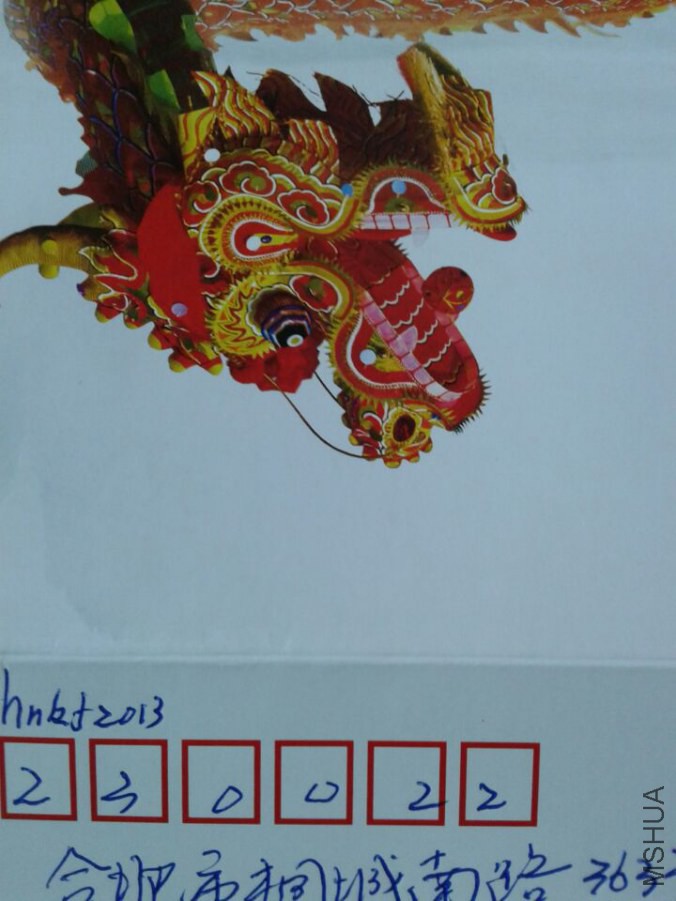 hnkf2013
230022
合肥市桐城南路363
MSHUA